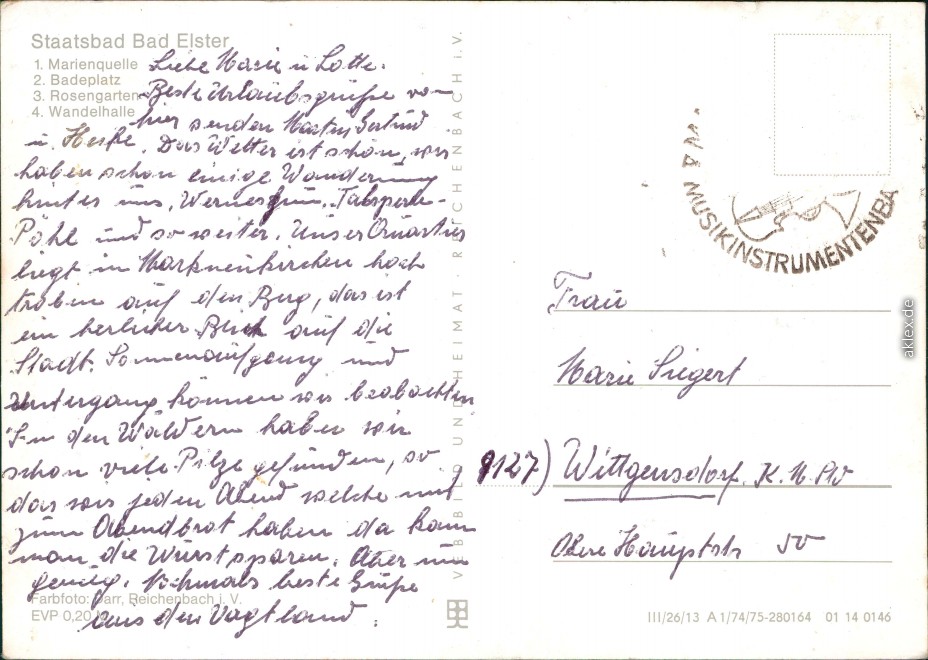 Staatsbad Bad Elster
1. Marienquelle
2. Badeplatz
3. Rosengarten
4. Wandelhalle
Liebe Marie u Lotte.
Beste Urlaubsgrüße von
hier senden Martin Gertrud
u. Heike. Das Wetter ist schön, wir
haben schon einige Wanderung
hinter uns, Wernesgrün, Talsperre-
Pöhl und so weiter. Unser Quartier
liegt in Markneukirchen hoch
troben auf den Berg, das ist
ein herlicher Blick auf die
Stadt. Sonnenaufgang und
Untergang können wir beobachten
In den Wäldern haben wir
schon viele Pilze gefunden, so
das wir jeden Abend welche mit
zum Abendbrot haben da kann
man die Wurst sparen. Aber nun
genug. Nochmals beste Grüße
aus den Vogtland.
Farbfoto: Darr, Reichenbach i. V.
EVP 0,20
VEB BILD UND HEIMAT · REICHENBACH i. V.
MUSIKINSTRUMENTENBA
Frau
Marie Siegert
9127) Wittgensdorf. K. M. Str
Obere Hauptstr 50
III/26/13 A 1/74/75-280164 01 14 0146
aklex.de